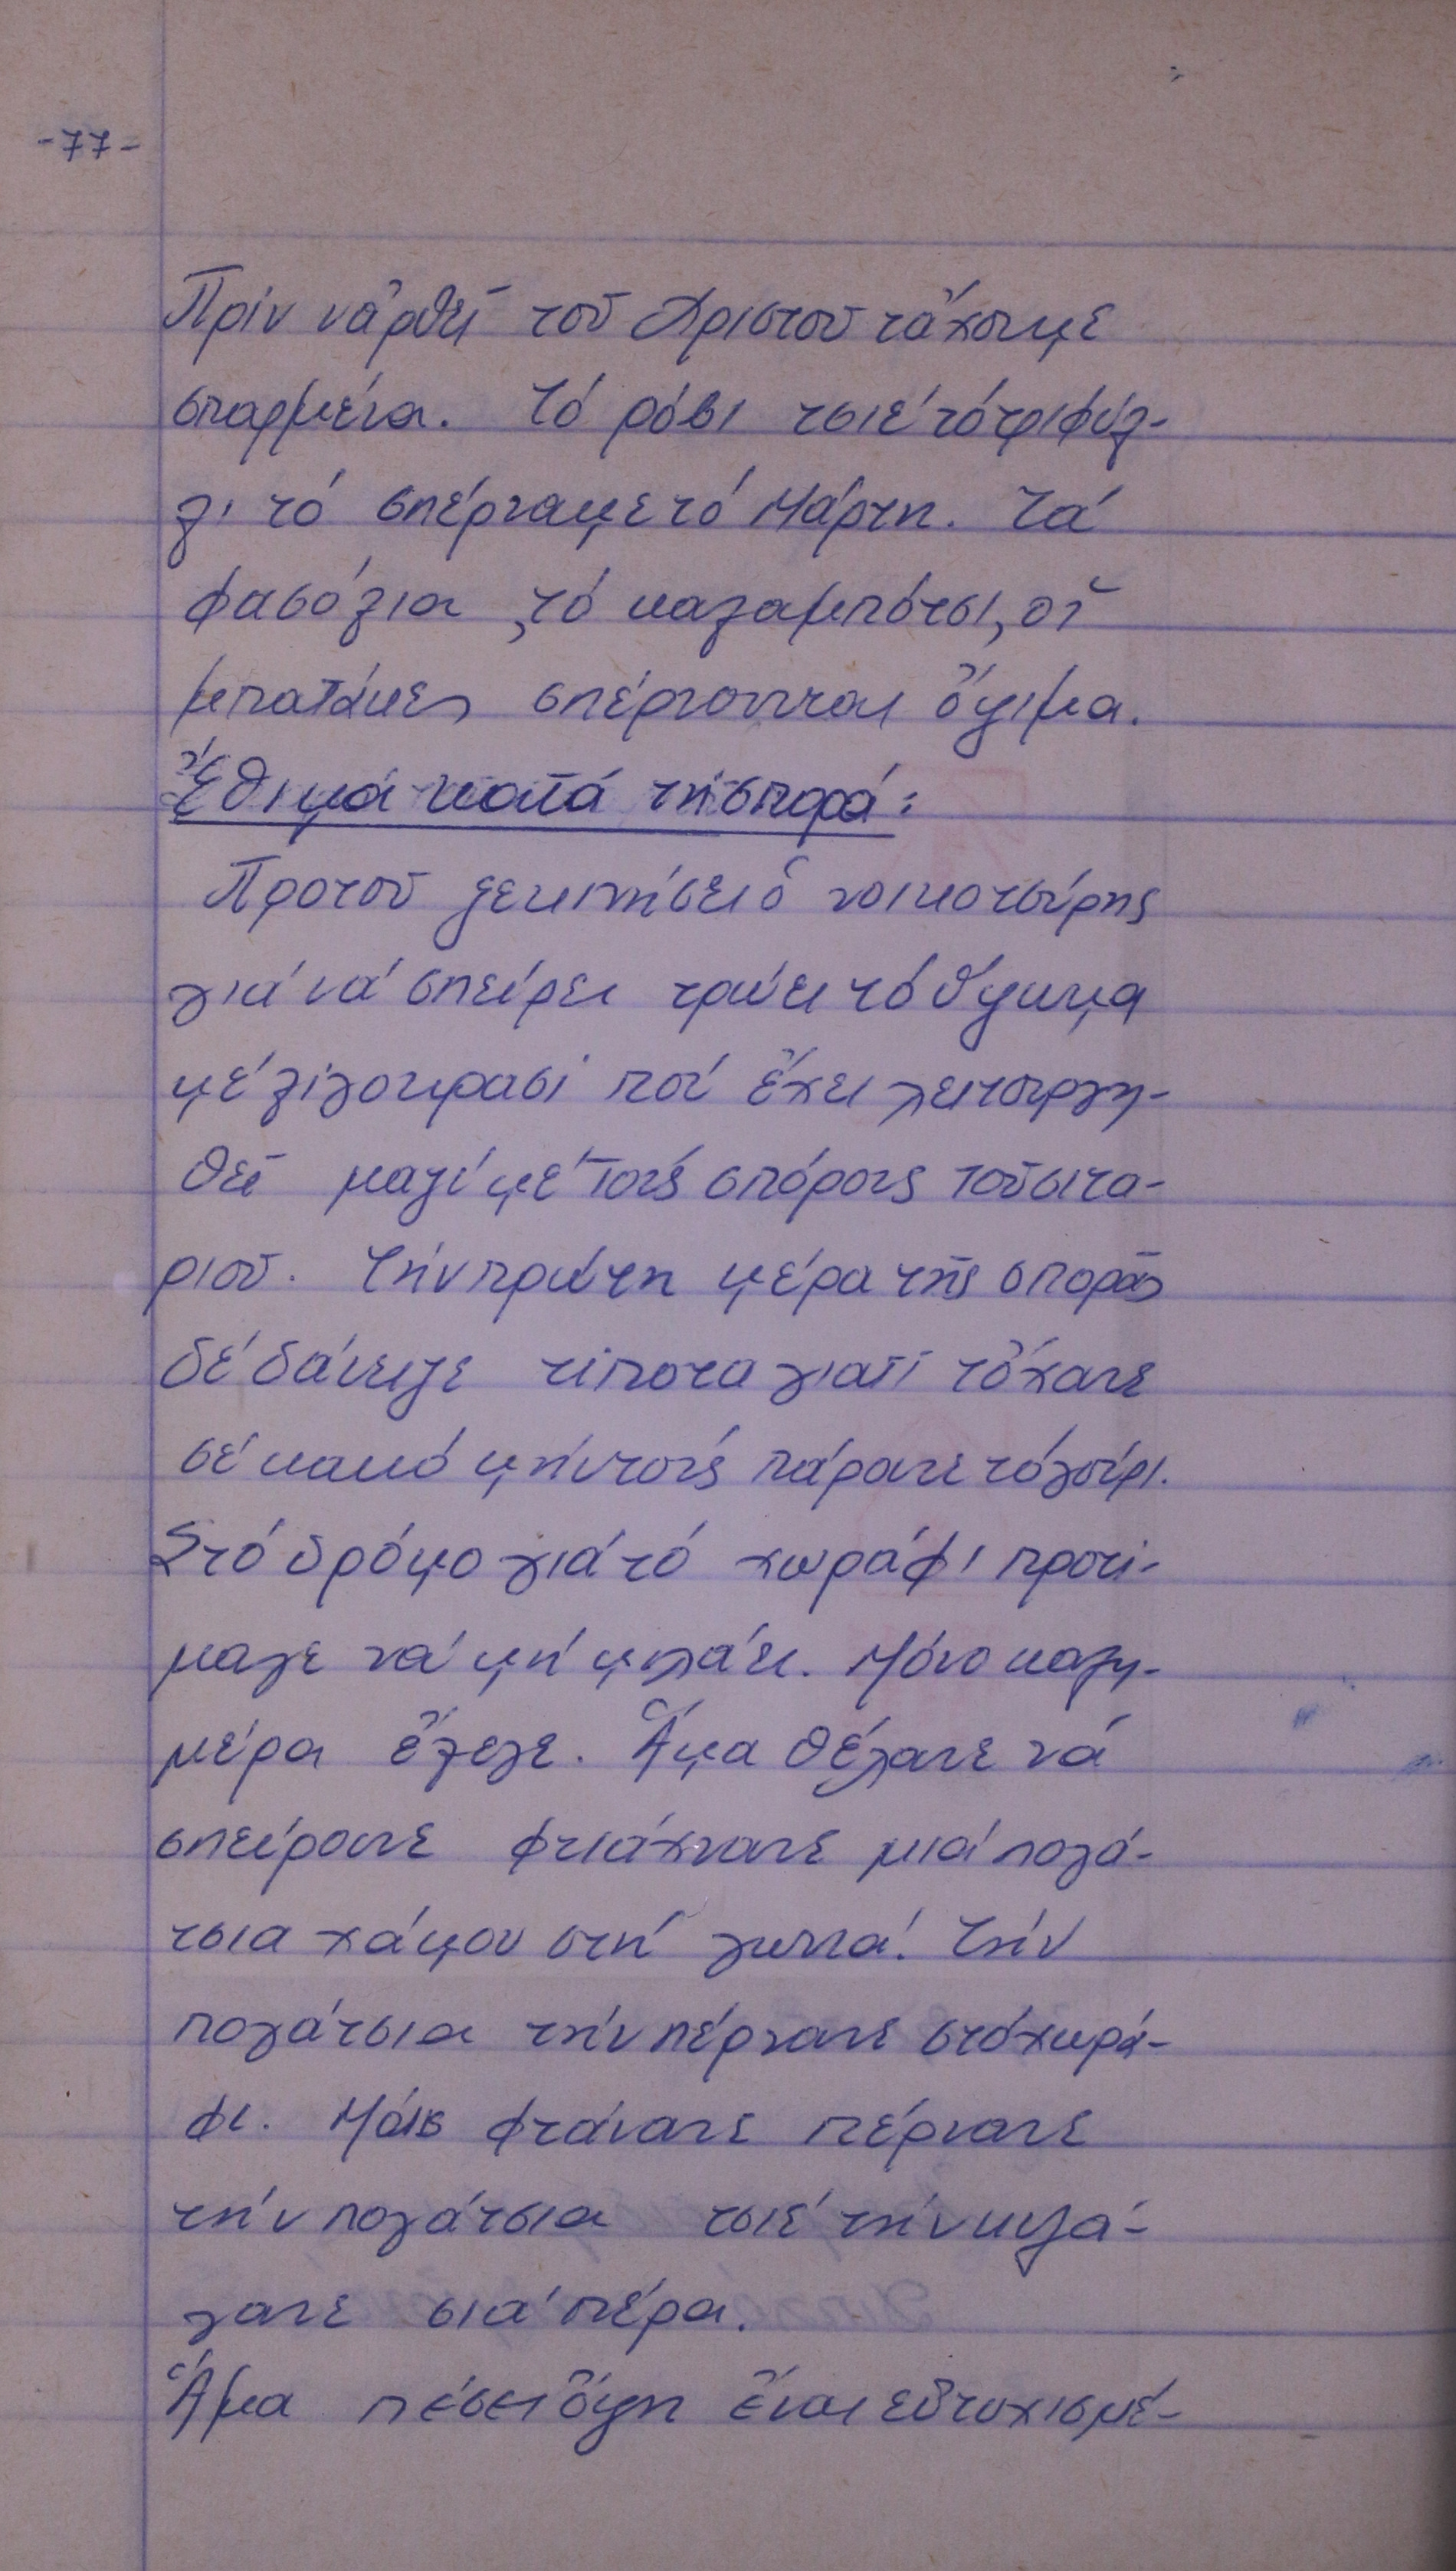 -77-
Πρίν νἄρθεῖ τοῦ Χριστοῦ τἄχουμε
σπαρμένα. Τό ρόβι τσιέ τό τριφύλ-
λι τό σπέρναμε τό Μάρτη. Τά
φασόλια, τό καλαμπότσι, οἱ
μπατάκες σπέρνουνται ὄψιμα.
Ἔθιμα κατά τή σπορά:
Προτοῦ ξεκινήσει ὁ νοικοτσύρης
γιά νά σπείρει τρώει τό ὕψωμα
μέ λίγο κρασί πού ἔχει λειτουργη-
θεῖ μαζί μέ τούς σπόρους τοῦ σιτα-
ριοῦ. Τήν πρώτη μέρα τῆς σπορᾶς
δέ δάνειζε τίποτα γιατί τὄχανε
σέ κακό μήν τούς πάρουνε τό γούρι.
Στό δρόμο γιά τό χωράφι προτί-
μαγε νά μή μιλάει. Μόνο καλη-
μέρα ἔλεγε. Ἅμα θέλανε νά
σπείρουνε φτιάχνανε μιά πογά-
τσια χάμου στή γωνιά. Τήν
πογάτσια τήν πέρνανε στό χωρά-
φι. Μόλις φτάνανε πέρνανε
τήν πογάτσια τσιέ τήν κυλά-
γανε σιά πέρα.
Ἅμα πέσει ὄψη εἶναι εὐτυχισμέ-